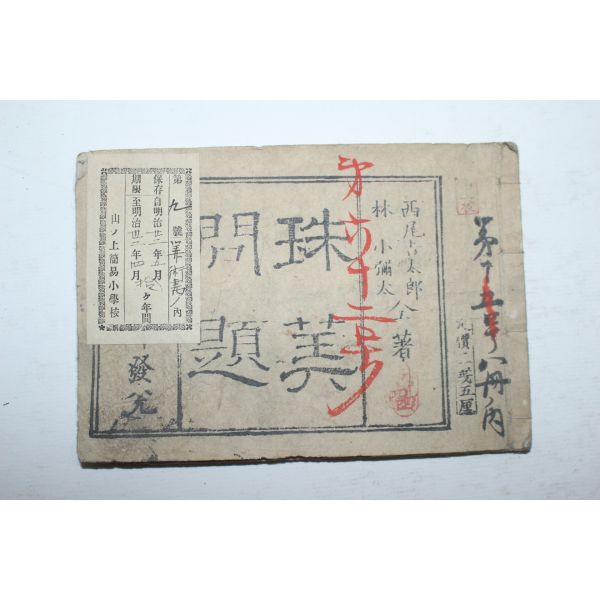 第十五号八冊ノ内
定價二錢五厘
西尾吉太郎
林小彌太
仝著
珠算
問題
發兌
第九號算術書ノ内
保存自明治廿二年五月
期限至明治卅二年四月
拾ケ年間
山ノ上簡易小學校